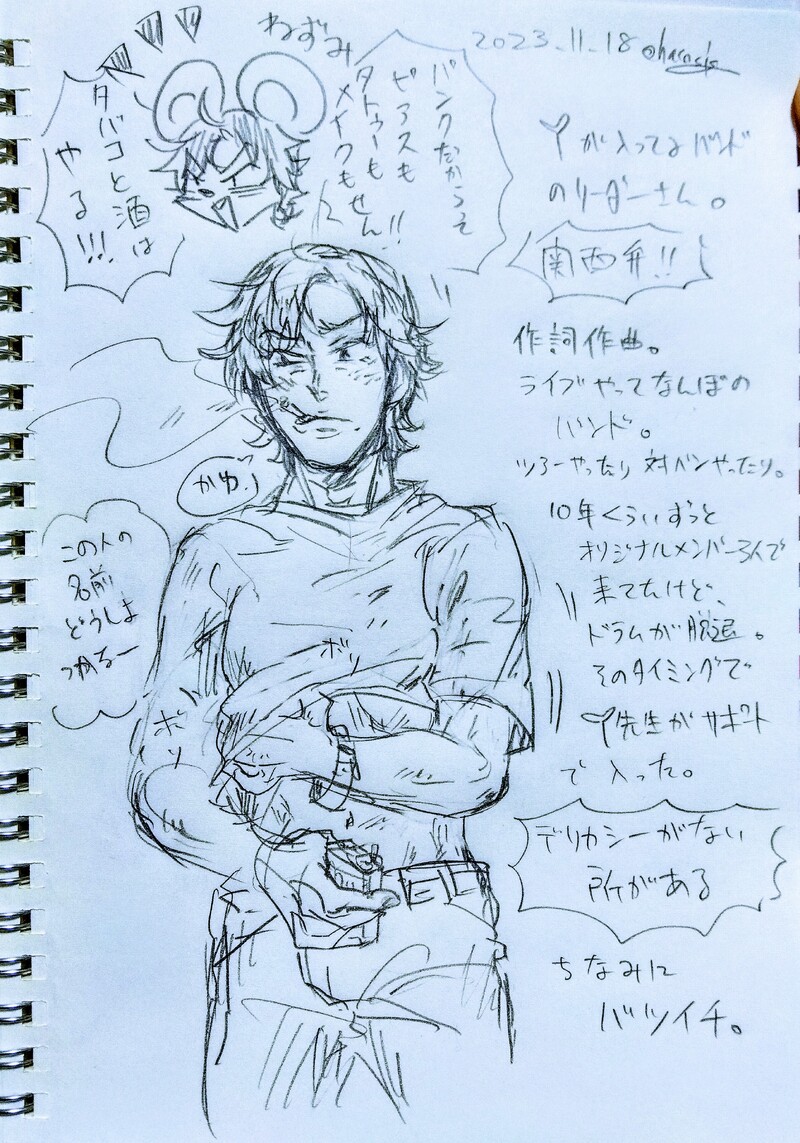 2023.11.18
ねずみ
パンクだからって
ピアスも
タトゥーも
メイクもせん!!
タバコと酒は
やる!!!
が入ってるバンド
のリーダーさん。
関西弁!!
作詞作曲。
ライブやってなんぼの
バンド。
ツアーやったり対バンやったり。
10年くらいずっと
オリジナルメンバー3人で
来てたけど、
ドラムが脱退。
そのタイミングで
先生がサポート
で入った。
デリカシーがない
所がある
ちなみに
バツイチ。
かゆ。
この人の
名前
どうしよ
ボリ
ボリ